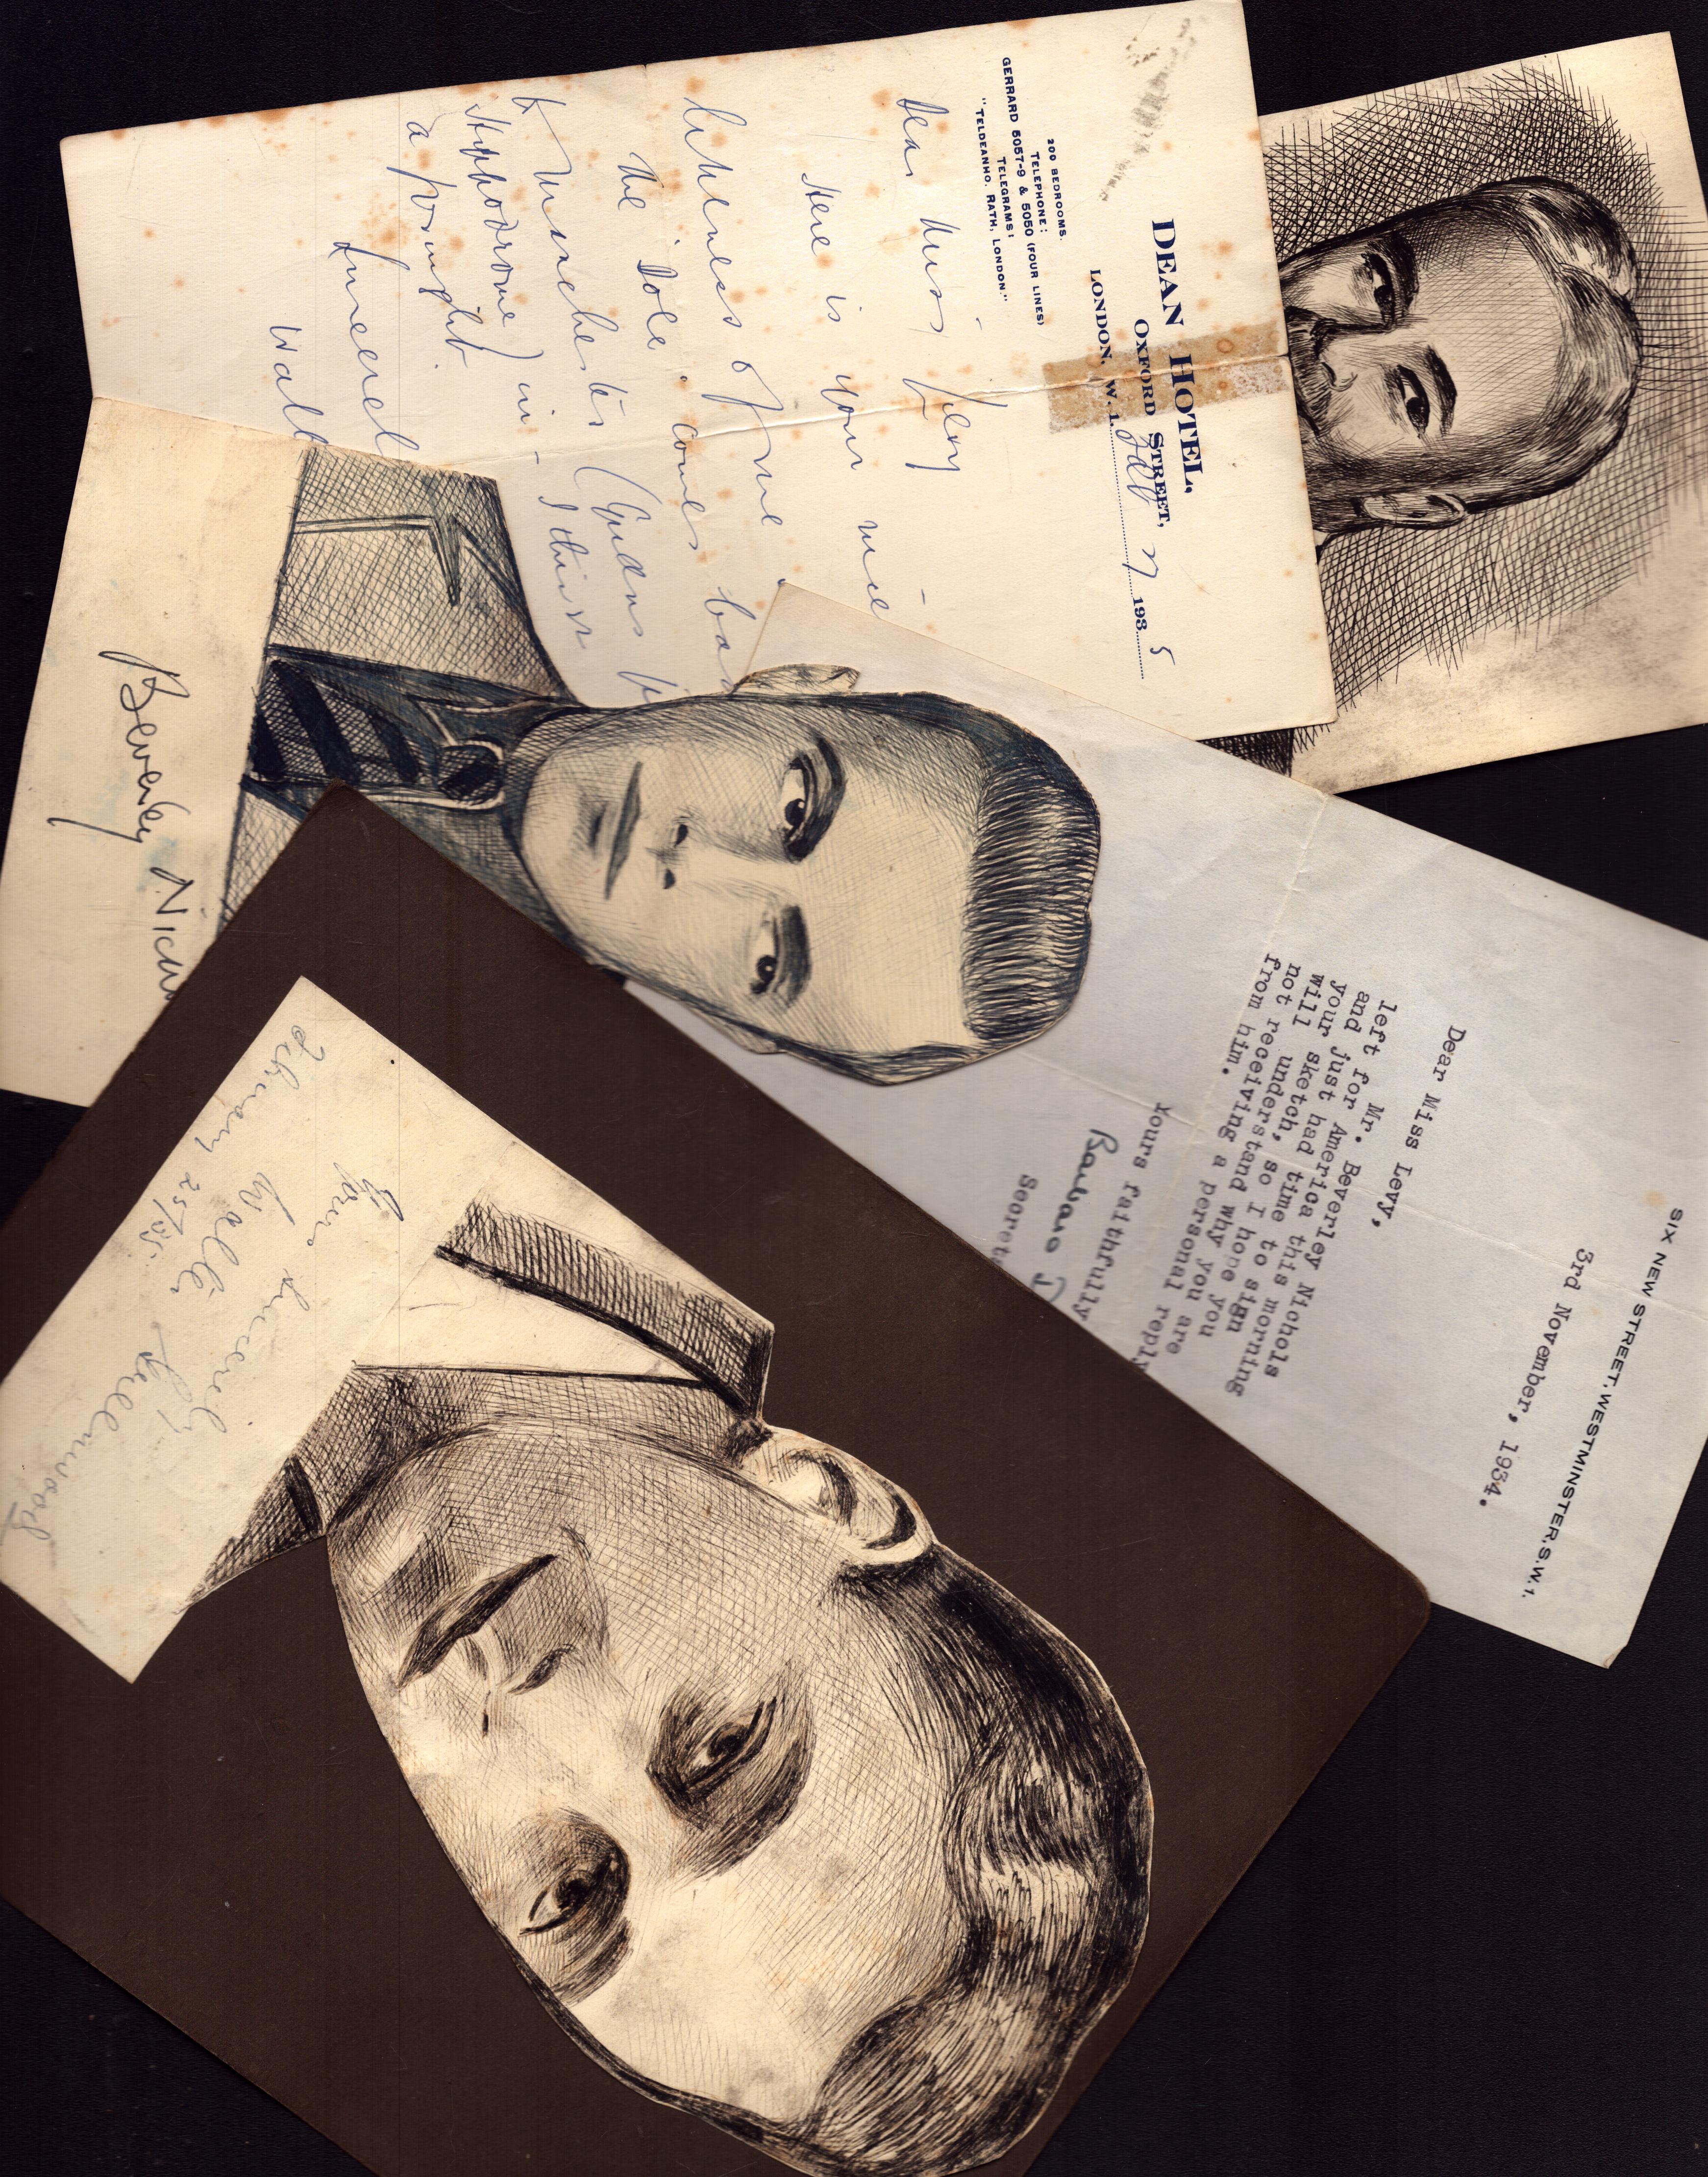 DEAN HOTEL,
OXFORD STREET,
LONDON, W.1.
200 BEDROOMS.
TELEPHONE:
GERRARD 5057-9 & 5050 (FOUR LINES)
TELEGRAMS:
"TELDEANHO, RATH, LONDON."
Feb 27 1935
Dear Miss Levy
Here is your
likeness of me
The Dole comes
to Manchester
Hippodrome) in
a fortnight.
Sincerely
SIX NEW STREET. WESTMINSTER. S.W.1.
3rd November, 1934.
Dear Miss Levy,
Mr. Beverley Nichols
left for America this morning
and just had time to sign
your sketch, so I hope you
will understand why you are
not receiving a personal reply
from him.
Yours faithfully
Barbara
Beverley
Yours sincerely
Walter Greenwood
February 25/35